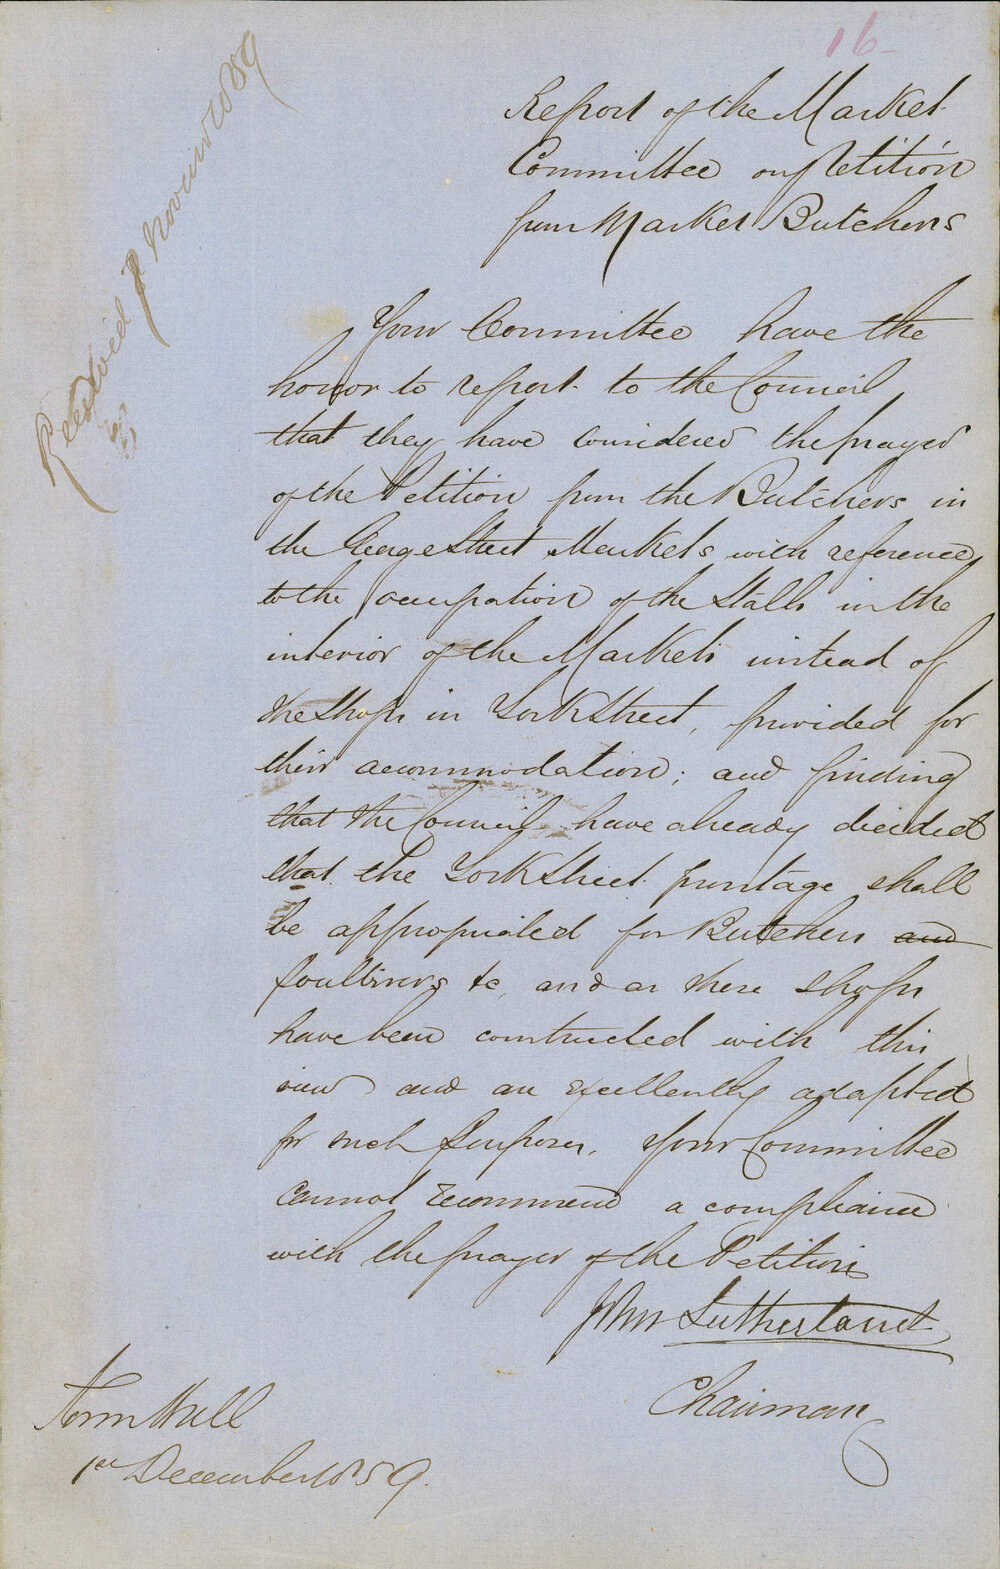 16
Report of the Market
Committee on Petition
from Market Butchers
Your Committee have the
honor to report to the Council
that they have considered the prayer
of the Petition from the Butchers in
the George Street Markets with reference
to the occupation of the Stalls in the
interior of the Markets instead of
the Shops in York Street, provided for
their accommodation; and finding
that the Council have already decided
that the York Street frontage shall
be appropriated for Butchers and
Poulterers &c, and as these Shops
have been constructed with this
view and are excellently adapted
for such purposes, Your Committee
cannot recommend a compliance
with the prayer of the Petition
John Sutherland
Chairman
Town Hall
1st December 1859.
Received Novr 1859